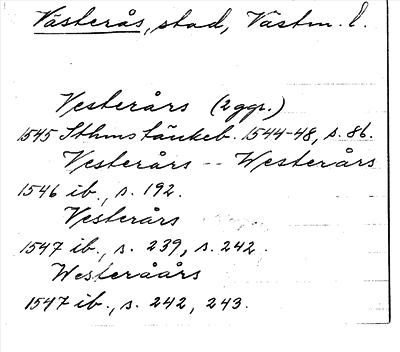 Västerås, stad, Västm. l.
Vesterårs (2 ggr.)
1545 Sthms tänkeb. 1544-48, s. 86.
Vesterårs -- Westerårs
1546 ib., s. 192.
Vesterårs
1547 ib., s. 239, s. 242.
Westeråårs
1547 ib., s. 242, 243.